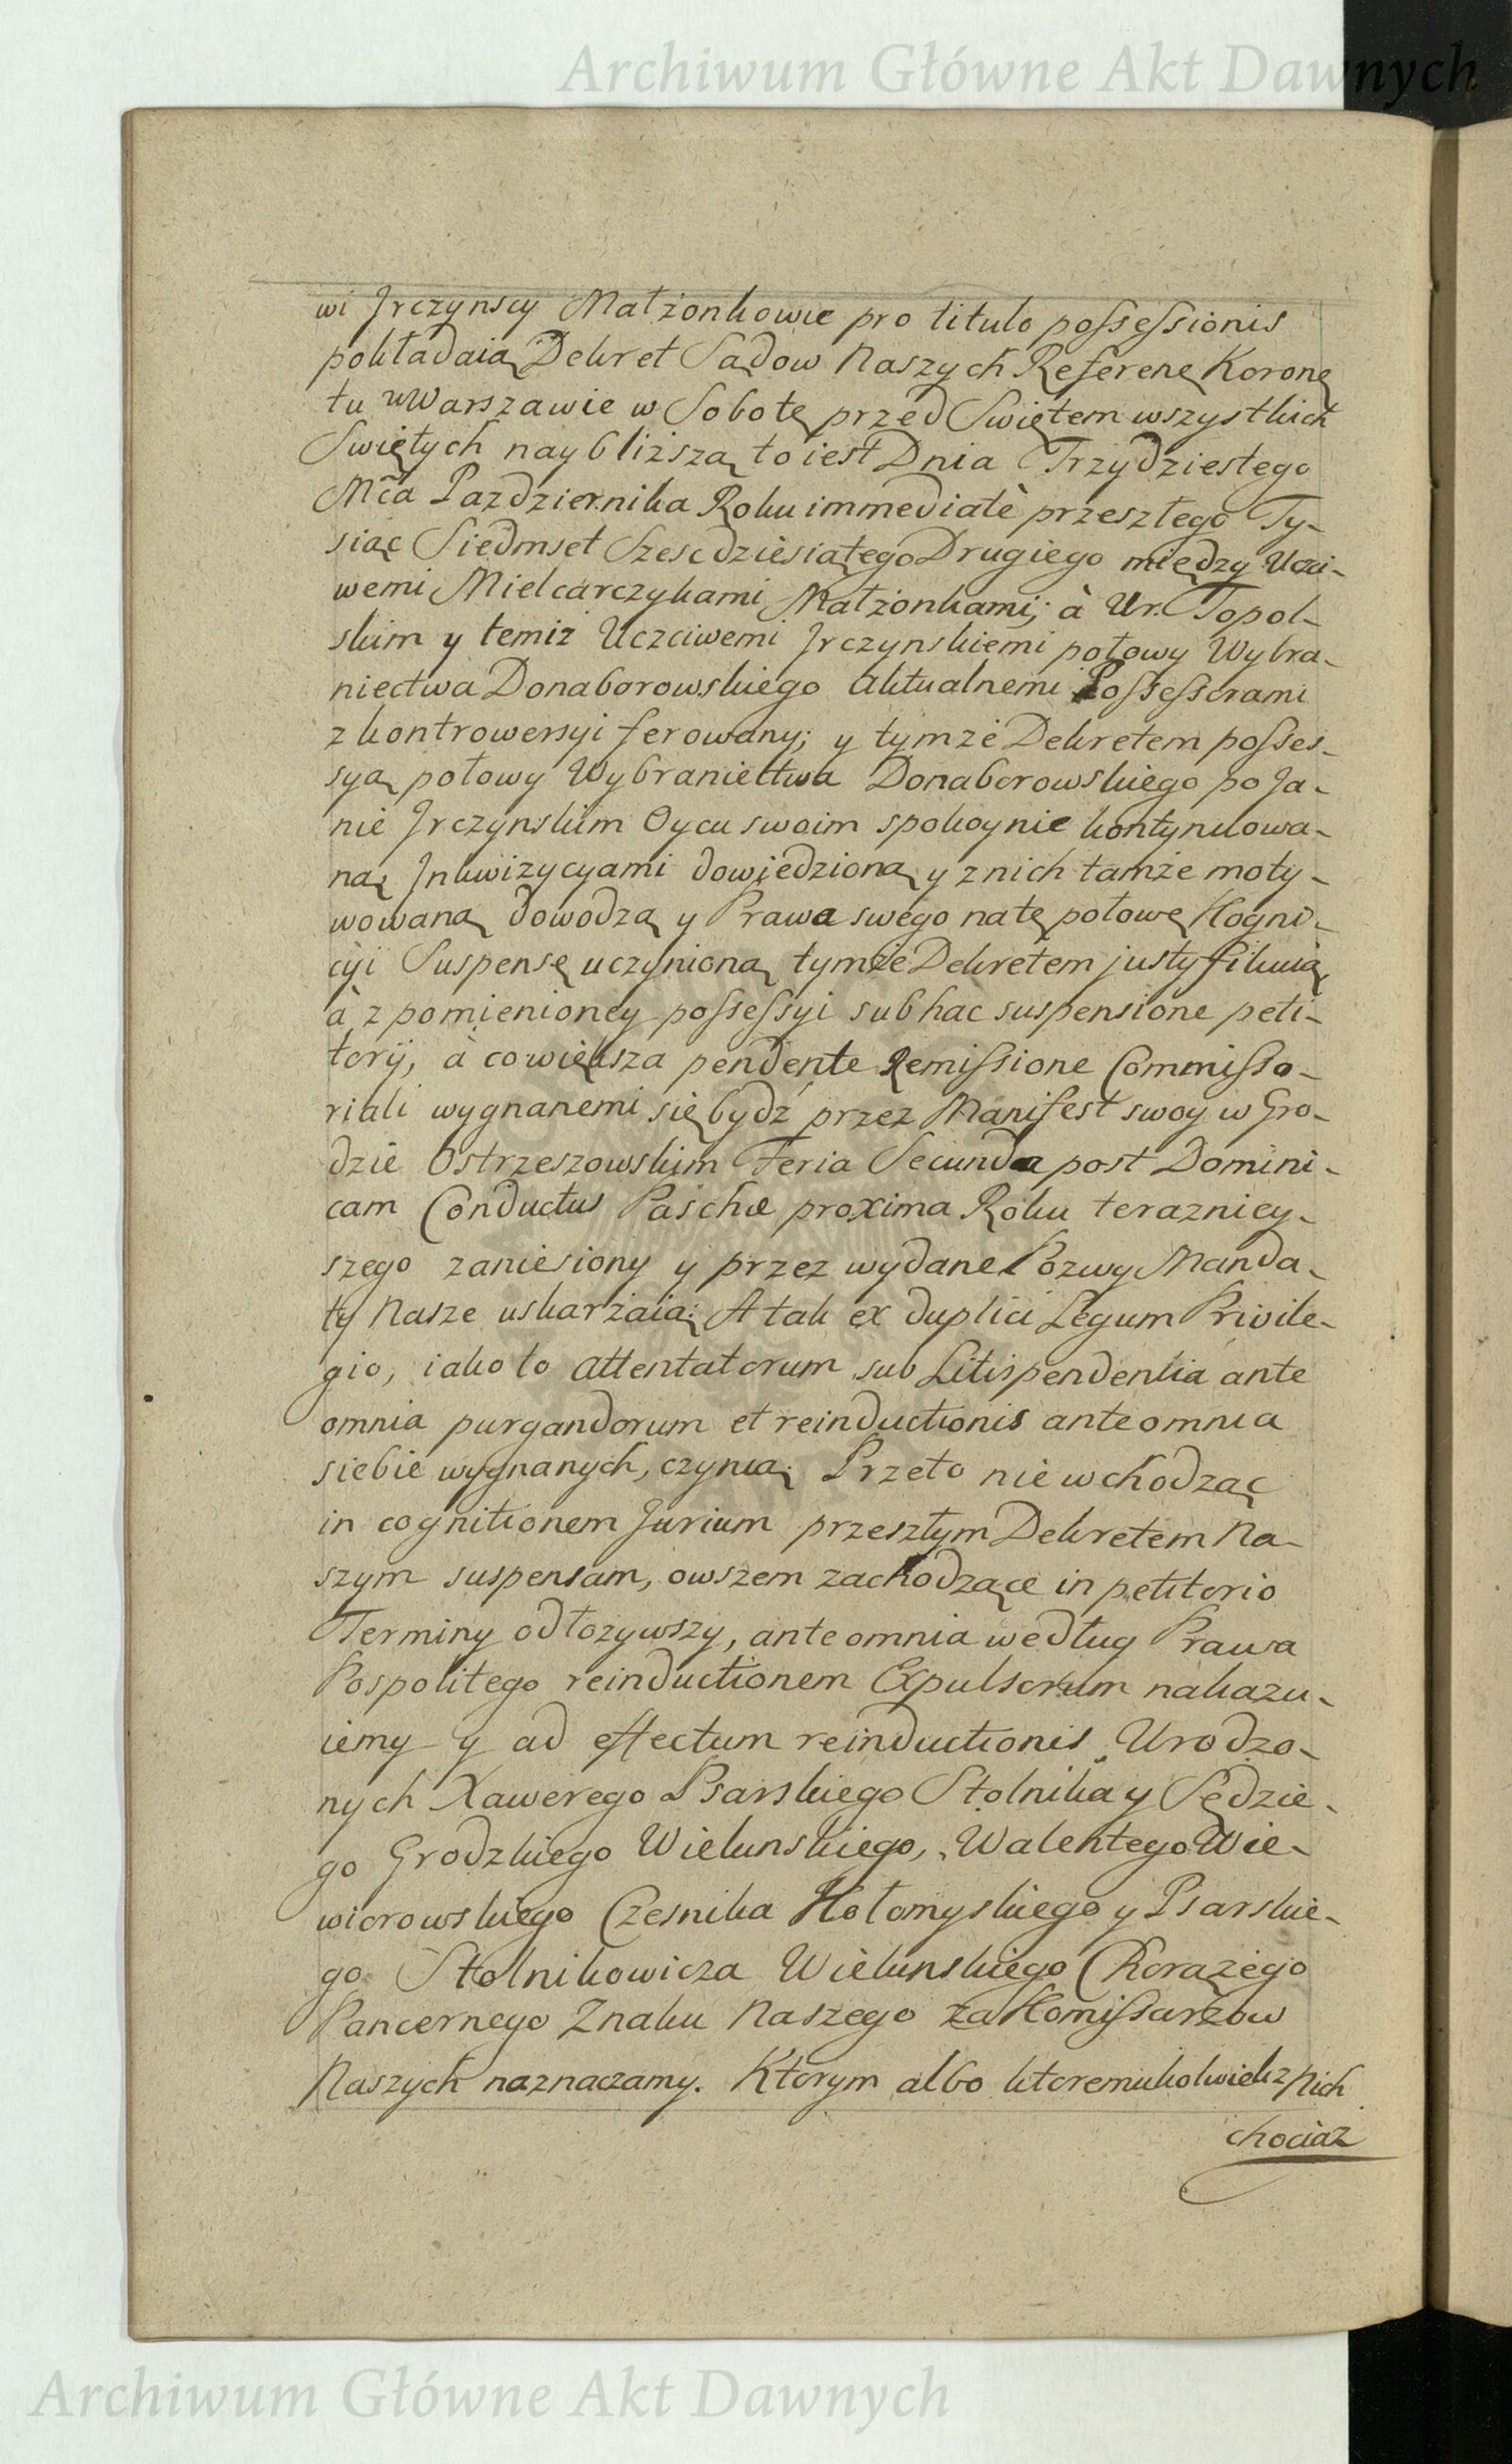 Archiwum Główne Akt Dawnych
wi Jrczynscy Małżonkowie pro titulo possessionis
pokładaią Dekret Sądow Naszych Referenę Koronę
tu w Warszawie w Sobotę przed Swiętem wszystkich
Swiętych naybliższą to iest Dnia Trzydziestego
Mca Pazdziernika Roku immediatè przeszłego Ty-
siąc Siedmset Szescdziesiątego Drugiego między Uczci-
wemi Mielcarczykami Małżonkami; à Ur. Topol-
skim y temiż Uczciwemi Jrczynskiemi połowy Wybra-
niectwa Donaborowskiego Aktualnemi Possessorami
z kontrowersyi ferowany; y tymże Dekretem posses-
syą połowy Wybraniectwa Donaborowskiego po Ja-
nie Jrczynskim Oycu swoim spokoynie kontynuowa-
ną Jnkwizycyami dowiedzioną y z nich tamże moty-
wowaną dowodzą y Prawa swego na tę połowę Kogni-
cyi Suspensę uczynioną tymże Dekretem justyfikuią
à z pomienioney possessyi sub hac suspensione peti-
torij, à co większa pendente Remissione Commisso-
riali wygnanemi się bydź przez Manifest swoy w Gro-
dzie Ostrzeszowskim Feria Secunda post Domini-
cam Conductus Paschæ proxima Roku teraznicy-
szego zaniesiony y przez wydane Pozwy Manda-
ty Nasze uskarżaią: A tak ex duplici Legum Privile-
gio, iako to attentatorum sub Litispendentia ante
omnia purgandorum et reinductionis ante omnia
siebie wygnanych, czynią: Przeto nie wchodząc
in cognitionem Jurium przeszłym Dekretem Na-
szym suspensam, owszem zachodzące in petitorio
Terminy odłozywszy, ante omnia według Prawa
Pospolitego reinductionem Expulsorum nakazu-
iemy y ad effectum reinductionis Urodzo-
nych Xawerego Psarskiego Stolnika y Sędzie-
go Grodzkiego Wielunskiego, Walentego Wie-
wiorowskiego Czesnika Hołomyskiego y Psarskie-
go Stolnikowicza Wielunskiego Chorążego
Pancernego Znaku Naszego za Komissarżow
Naszych naznaczamy. Ktorym albo ktoremukolwiek z Nich
chociaz
Archiwum Główne Akt Dawnych